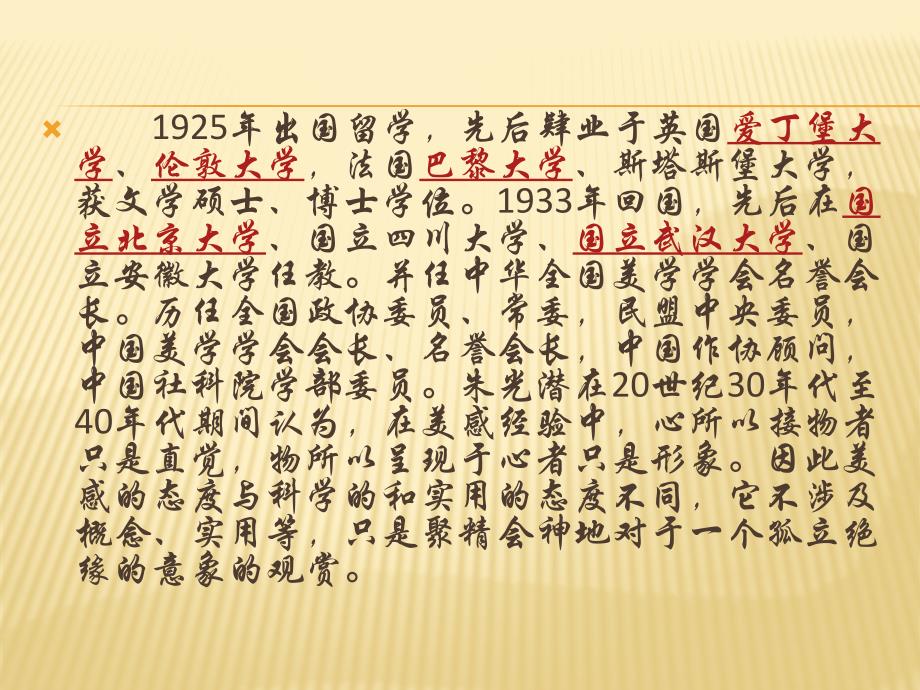 1925年出国留学，先后肄业于英国爱丁堡大
学、伦敦大学，法国巴黎大学、斯塔斯堡大学，
获文学硕士、博士学位。1933年回国，先后在国
立北京大学、国立四川大学、国立武汉大学、国
立安徽大学任教。并任中华全国美学学会名誉会
长。历任全国政协委员、常委，民盟中央委员，
中国美学学会会长、名誉会长，中国作协顾问，
中国社科院学部委员。朱光潜在20世纪30年代至
40年代期间认为，在美感经验中，心所以接物者
只是直觉，物所以呈现于心者只是形象。因此美
感的态度与科学的和实用的态度不同，它不涉及
概念、实用等，只是聚精会神地对于一个孤立绝
缘的意象的观赏。